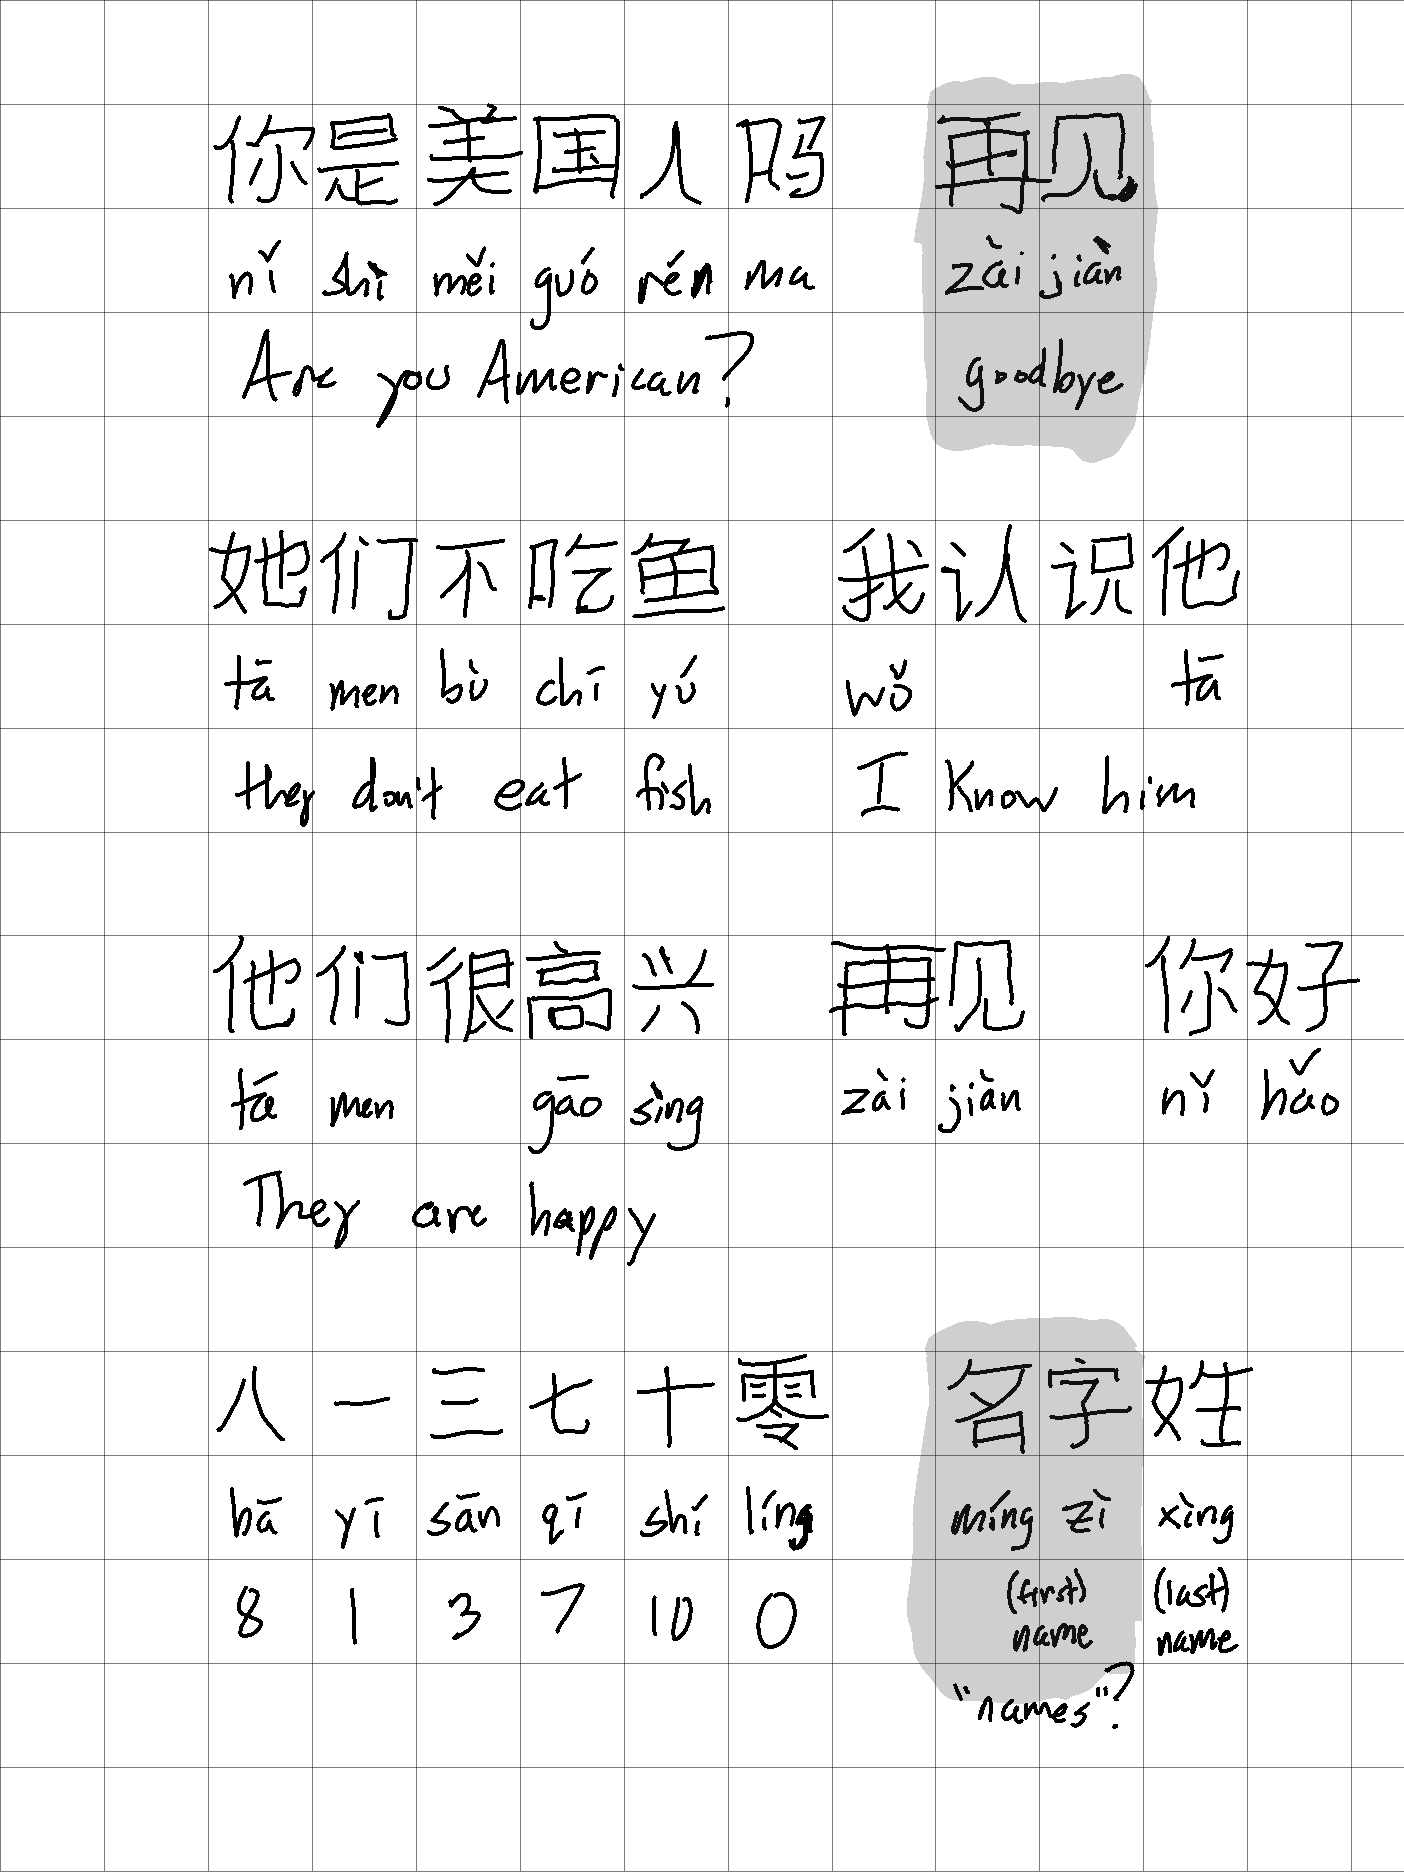 你是美国人吗 再见
nǐ shì měi guó rén ma zài jiàn
Are you American? goodbye
她们不吃鱼 我认识他
tā men bù chī yú wǒ tā
they don't eat fish I know him
他们很高兴 再见 你好
tā men gāo sìng zài jiàn nǐ hǎo
They are happy
八一三七十零 名字姓
bā yī sān qī shí líng míng zì xìng
8 1 3 7 10 0 (first) name (last) name
"names"?